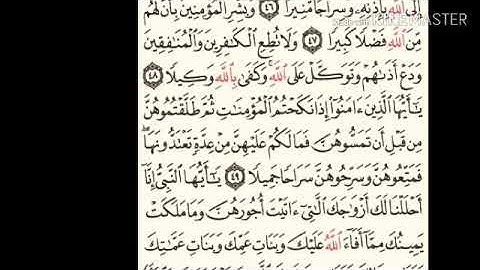 إِلَى ٱللَّهِ بِإِذْنِهِۦ وَسِرَاجًا مُّنِيرًا ٤٦ وَبَشِّرِ ٱلْمُؤْمِنِينَ بِأَنَّ لَهُم
مِّنَ ٱللَّهِ فَضْلًا كَبِيرًا ٤٧ وَلَا تُطِعِ ٱلْكَٰفِرِينَ وَٱلْمُنَٰفِقِينَ
وَدَعْ أَذَىٰهُمْ وَتَوَكَّلْ عَلَى ٱللَّهِ ۚ وَكَفَىٰ بِٱللَّهِ وَكِيلًا ٤٨
يَٰٓأَيُّهَا ٱلَّذِينَ ءَامَنُوٓا۟ إِذَا نَكَحْتُمُ ٱلْمُؤْمِنَٰتِ ثُمَّ طَلَّقْتُمُوهُنَّ
مِن قَبْلِ أَن تَمَسُّوهُنَّ فَمَا لَكُمْ عَلَيْهِنَّ مِنْ عِدَّةٍ تَعْتَدُّونَهَا ۖ
فَمَتِّعُوهُنَّ وَسَرِّحُوهُنَّ سَرَاحًا جَمِيلًا ٤٩ يَٰٓأَيُّهَا ٱلنَّبِىُّ إِنَّآ
أَحْلَلْنَا لَكَ أَزْوَٰجَكَ ٱلَّٰتِىٓ ءَاتَيْتَ أُجُورَهُنَّ وَمَا مَلَكَتْ
يَمِينُكَ مِمَّآ أَفَآءَ ٱللَّهُ عَلَيْكَ وَبَنَاتِ عَمِّكَ وَبَنَاتِ عَمَّٰتِكَ
KINEMASTER